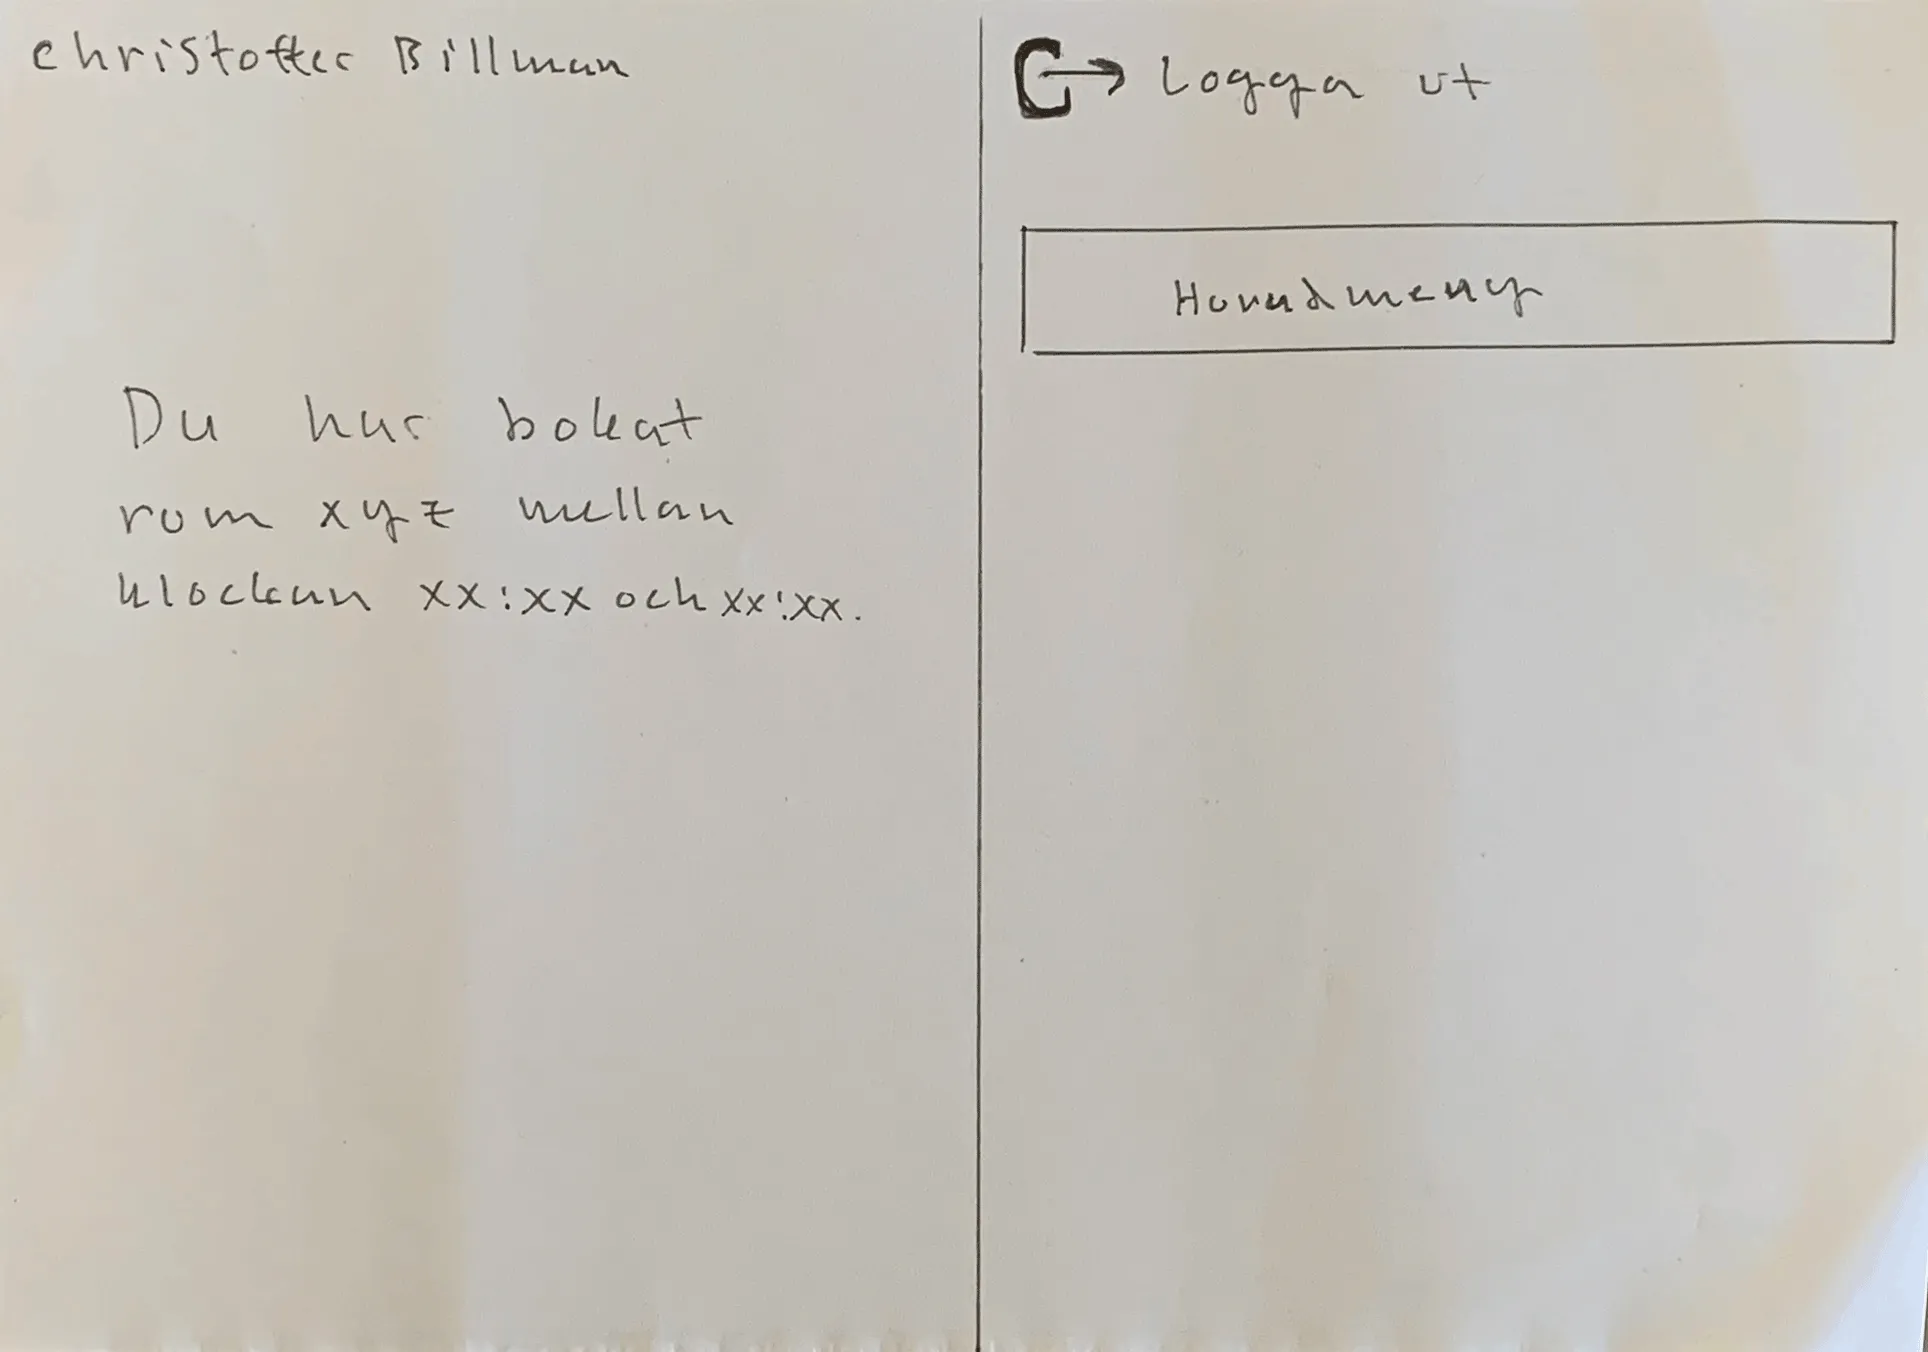 Christoffer Billman
Du har bokat
rum xyz mellan
klockan xx:xx och xx:xx.
Logga ut
Huvudmeny